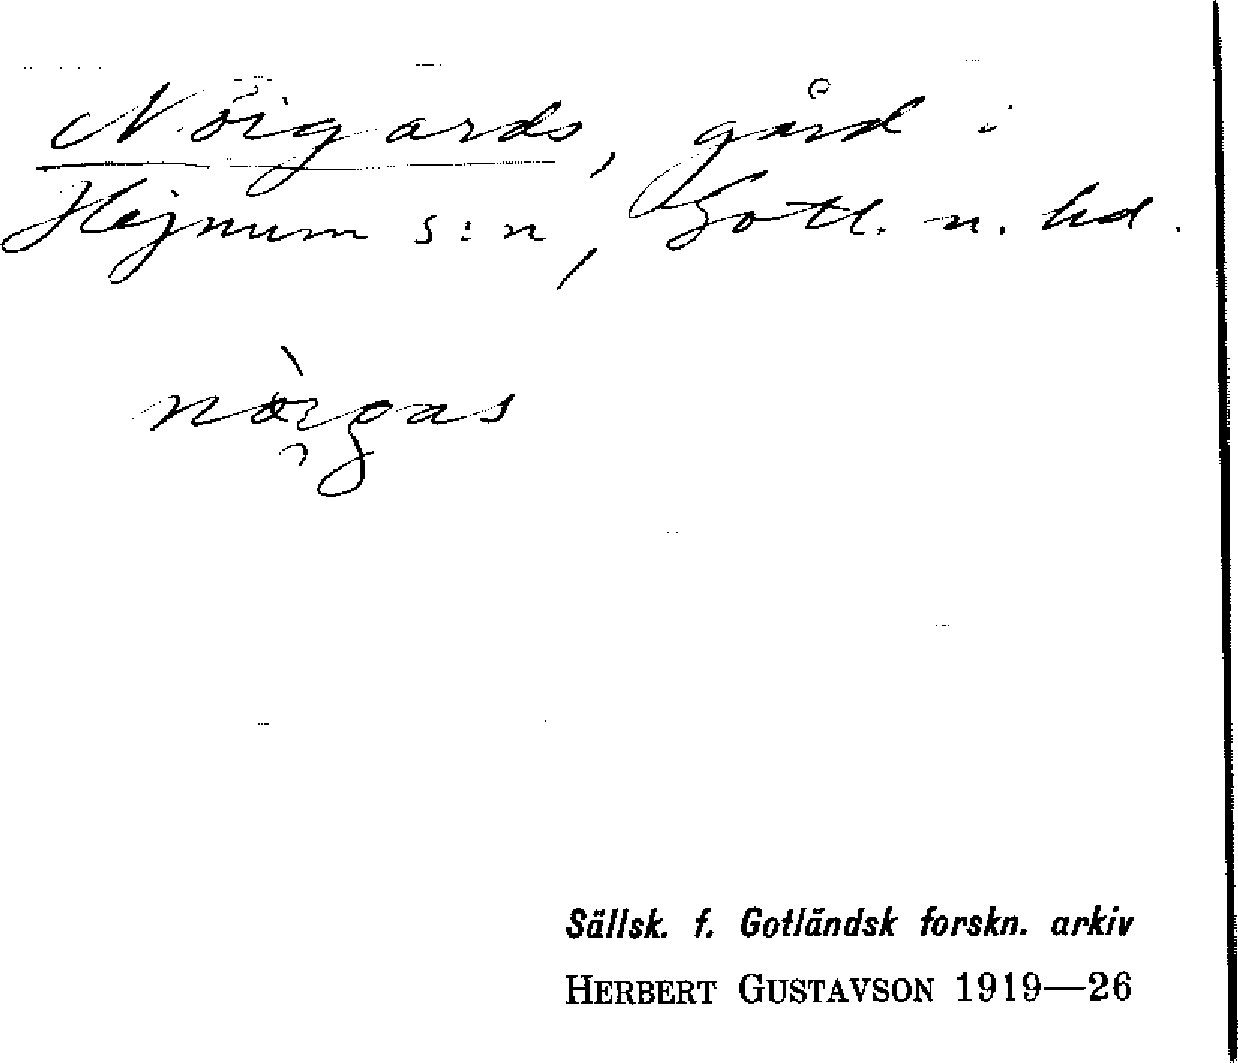 Nöigards, gård i
Hejnum s:n, Gotl. n. hd.
Sällsk. f. Gotländsk forskn. arkiv
HERBERT GUSTAVSON 1919—26